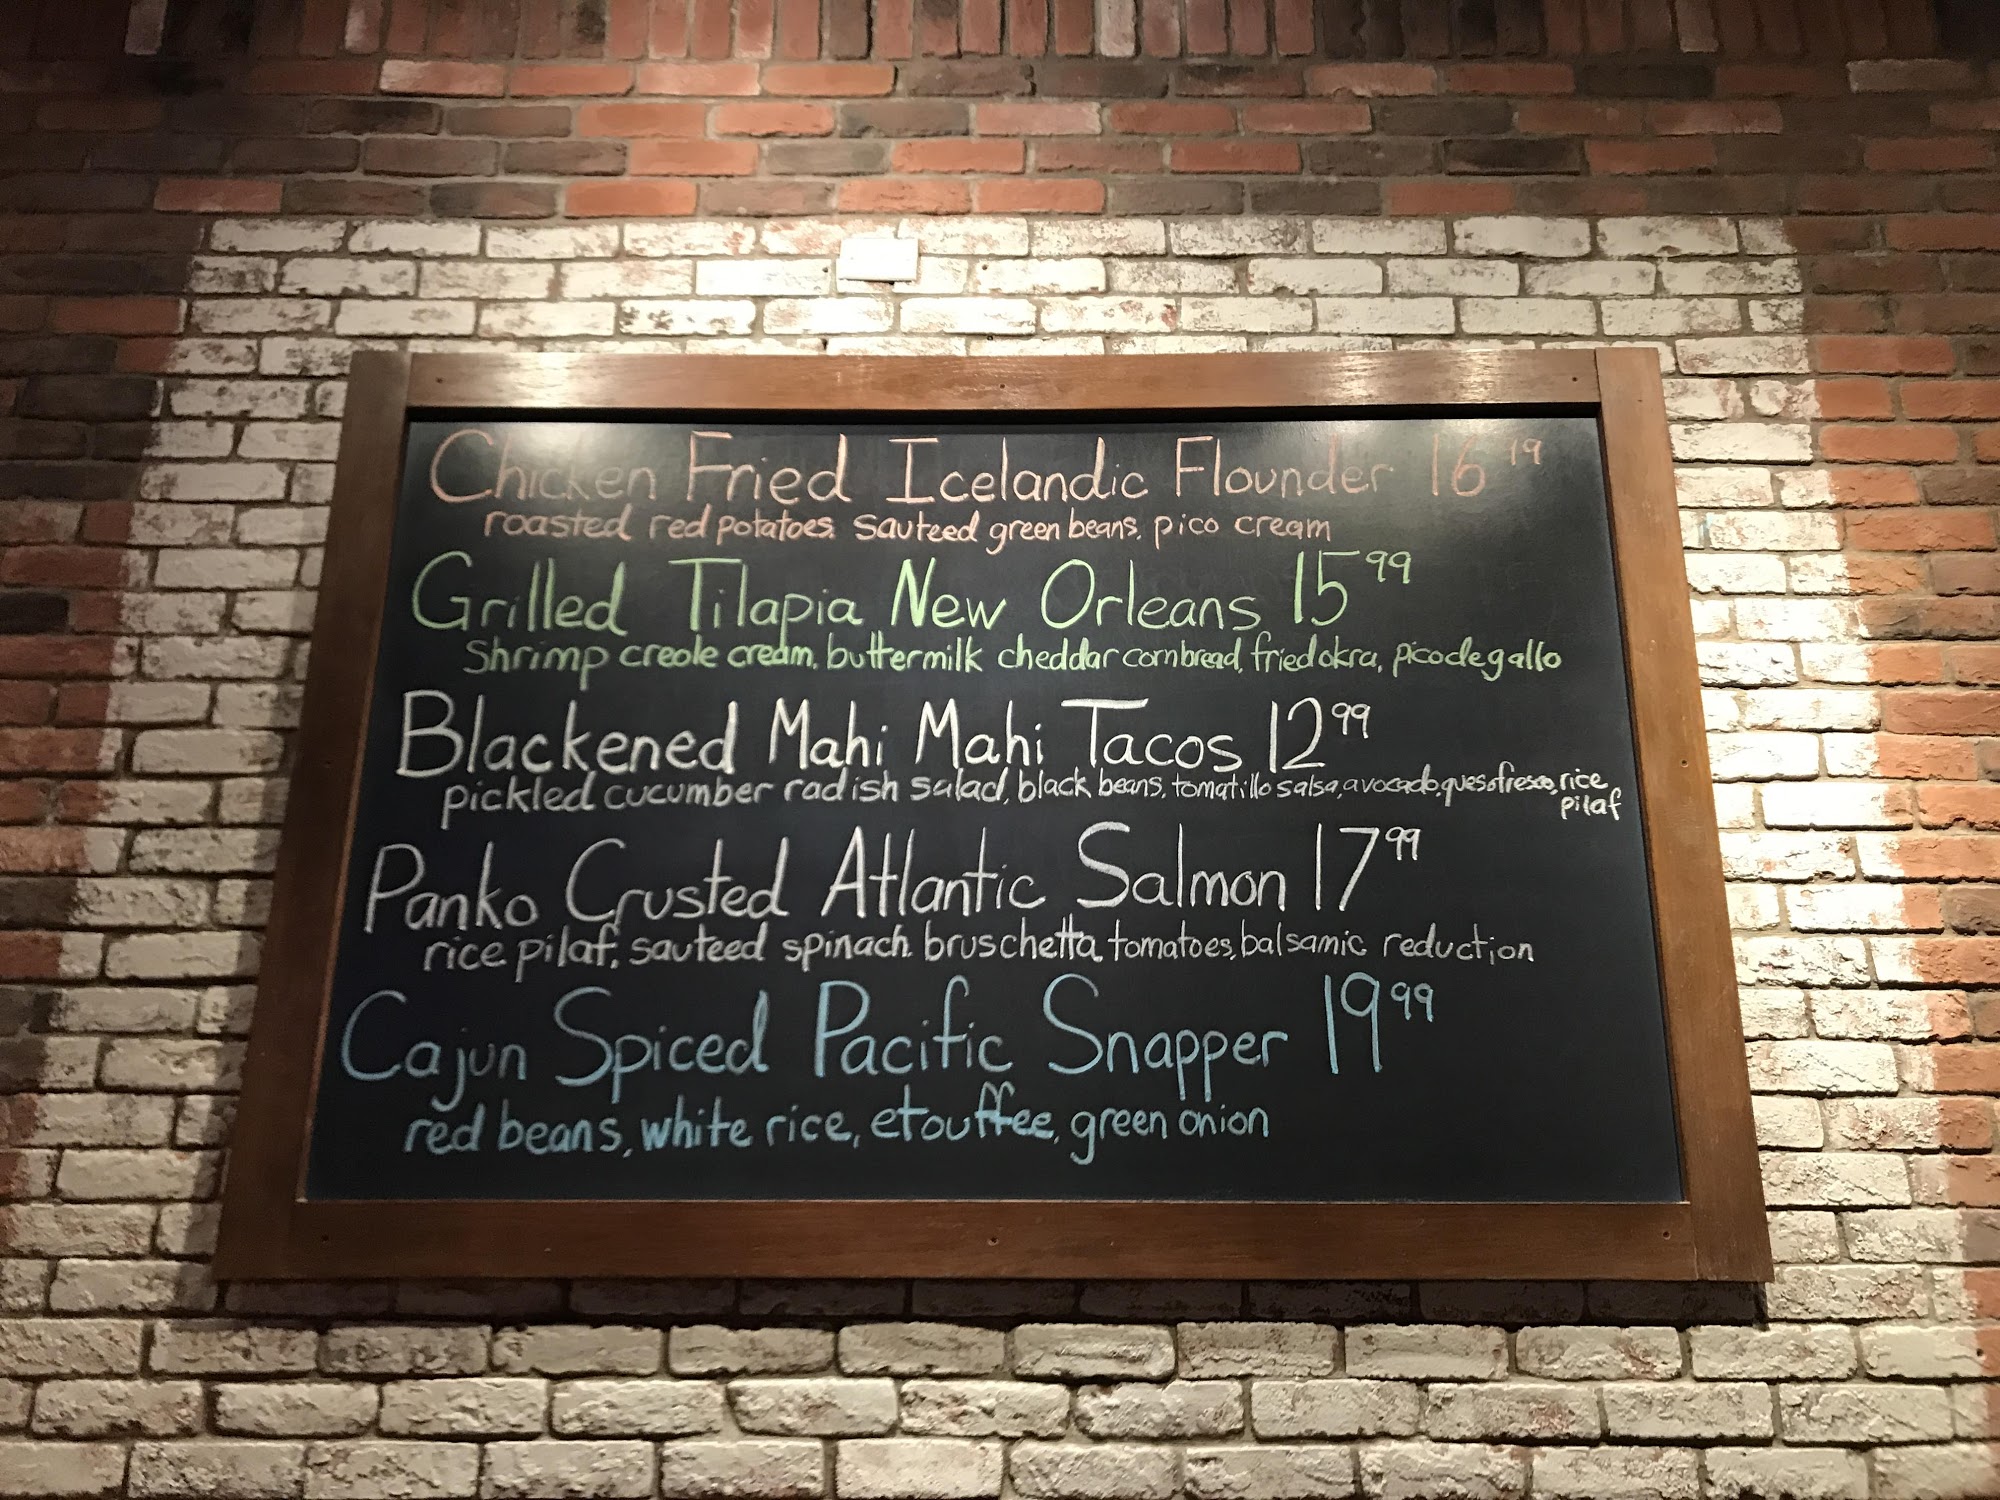 Chicken Fried Icelandic Flounder 16 99
roasted red potatoes. sauteed green beans, pico cream
Grilled Tilapia New Orleans 15 99
shrimp creole cream, buttermilk cheddar cornbread, fried okra, pico de gallo
Blackened Mahi Mahi Tacos 12 99
pickled cucumber radish salad, black beans, tomatillo salsa, avocado, queso fresco, rice
pilaf
Panko Crusted Atlantic Salmon 17 99
rice pilaf, sauteed spinach. bruschetta tomatoes, balsamic reduction
Cajun Spiced Pacific Snapper 19 99
red beans, white rice, etouffee, green onion